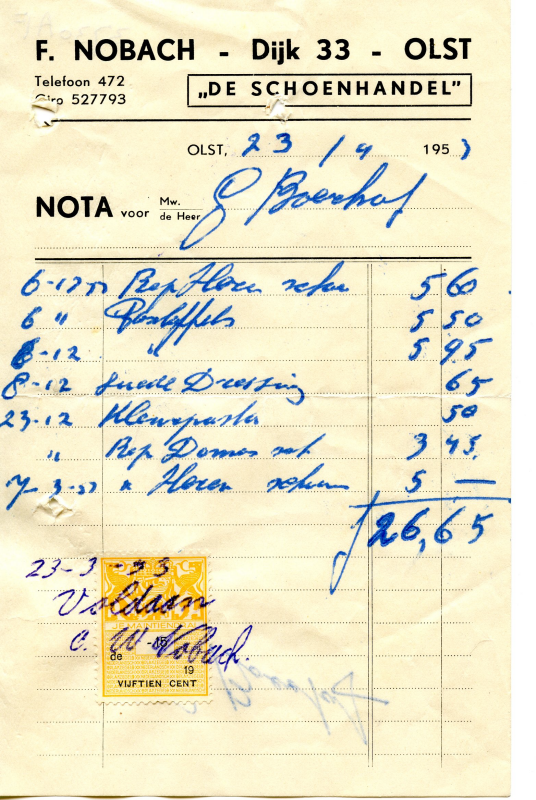 F. NOBACH - Dijk 33 - OLST
Telefoon 472
Giro 527793
„DE SCHOENHANDEL"
OLST, 23/4 1953
NOTA voor Mw. de Heer G Boerhof
6-12 52 Rep Heren schn 5 60
6 " Pantoffels 5 50
6-12 " 5 95
8-12 Suede Dressing 65
23-12 Kleurpasta 50
" Rep Dames sch 3 45
7-3-53 " Heren schn 5 —
f 26,65
23-3-53
Voldaan
C. W Nobach.
JE MAINTIENDRAI
-15
de 19
VIJFTIEN CENT